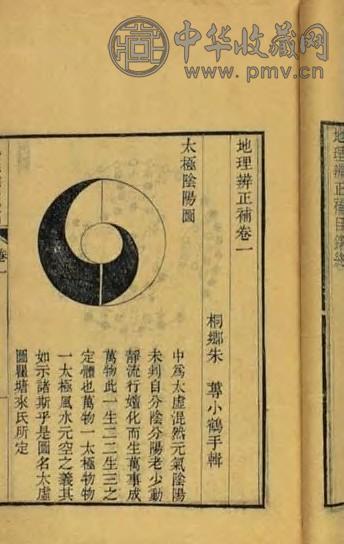 中华收藏网
www.pmv.cn
地理辨正補目錄終
地理辨正補卷一
桐鄉朱 蓴小鶴手輯
太極陰陽圖
中爲太虛混然元氣陰陽
未判自分陰分陽老少動
靜流行嬗化而生萬事成
萬物此一生二二生三之
定體也萬物一太極物物
一太極風水元空之義其
如示諸斯乎是圖名太虛
圖瞿塘來氏所定
卷一